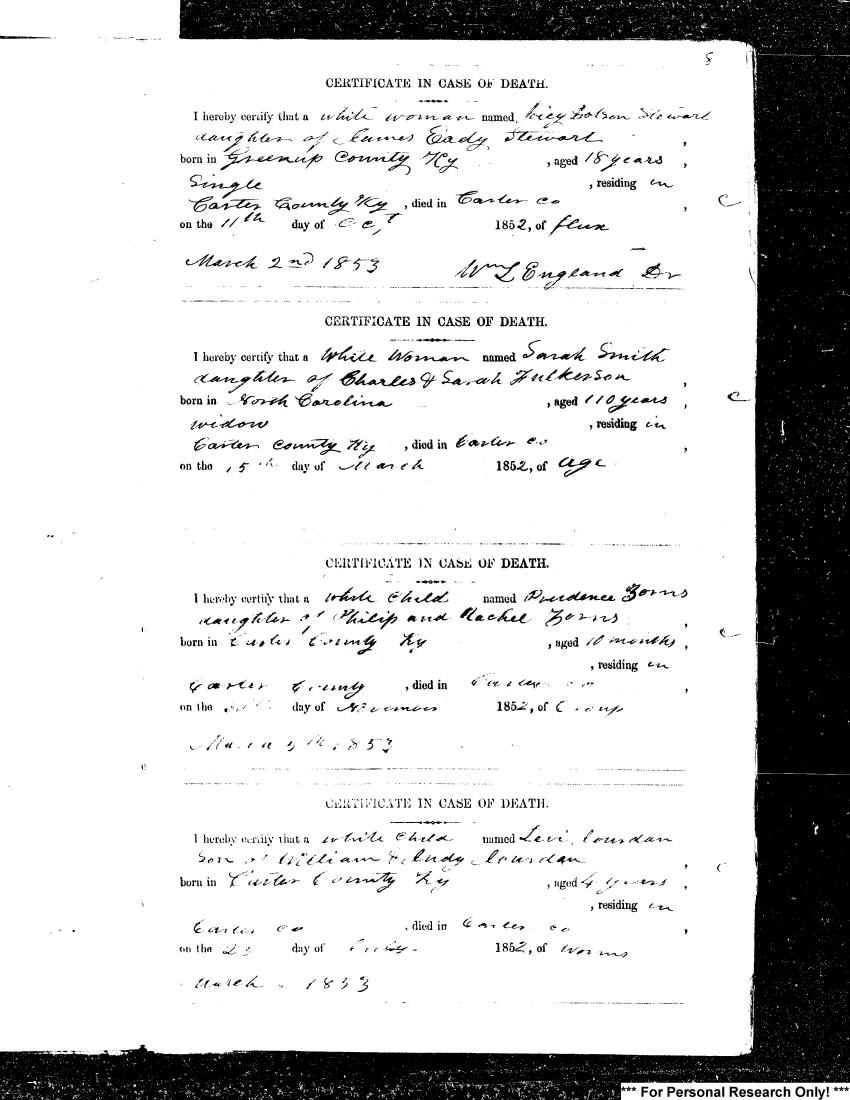 8
CERTIFICATE IN CASE OF DEATH.
I hereby certify that a white woman named Stewart
daughter of James Eady Stewart ,
born in Greenup County Ky , aged 18 years ,
Single , residing in
Carter County Ky , died in Carter co ,
C
on the 11th day of Oct 1852, of flux
March 2nd 1853 Wm L England Dr
CERTIFICATE IN CASE OF DEATH.
I hereby certify that a White Woman named Sarah Smith
daughter of Charles & Sarah Fulkerson ,
born in North Carolina , aged 110 years ,
C
widow , residing in
Carter County Ky , died in Carter co ,
on the 15th day of March 1852, of age
CERTIFICATE IN CASE OF DEATH.
I hereby certify that a White Child named Prudence Zorns
daughter of Philip and Rachel Zorns ,
born in Carter County Ky , aged 10 months ,
C
, residing in
Carter County , died in Carter co ,
on the day of November 1852, of Croup
March 5th 1853
CERTIFICATE IN CASE OF DEATH.
I hereby certify that a White Child named Levi Jourdan
Son of William & Judy Jourdan ,
born in Carter County Ky , aged 4 years ,
C
, residing in
Carter co , died in Carter co ,
on the 23 day of 1852, of Worms
March 1853
*** For Personal Research Only! ***